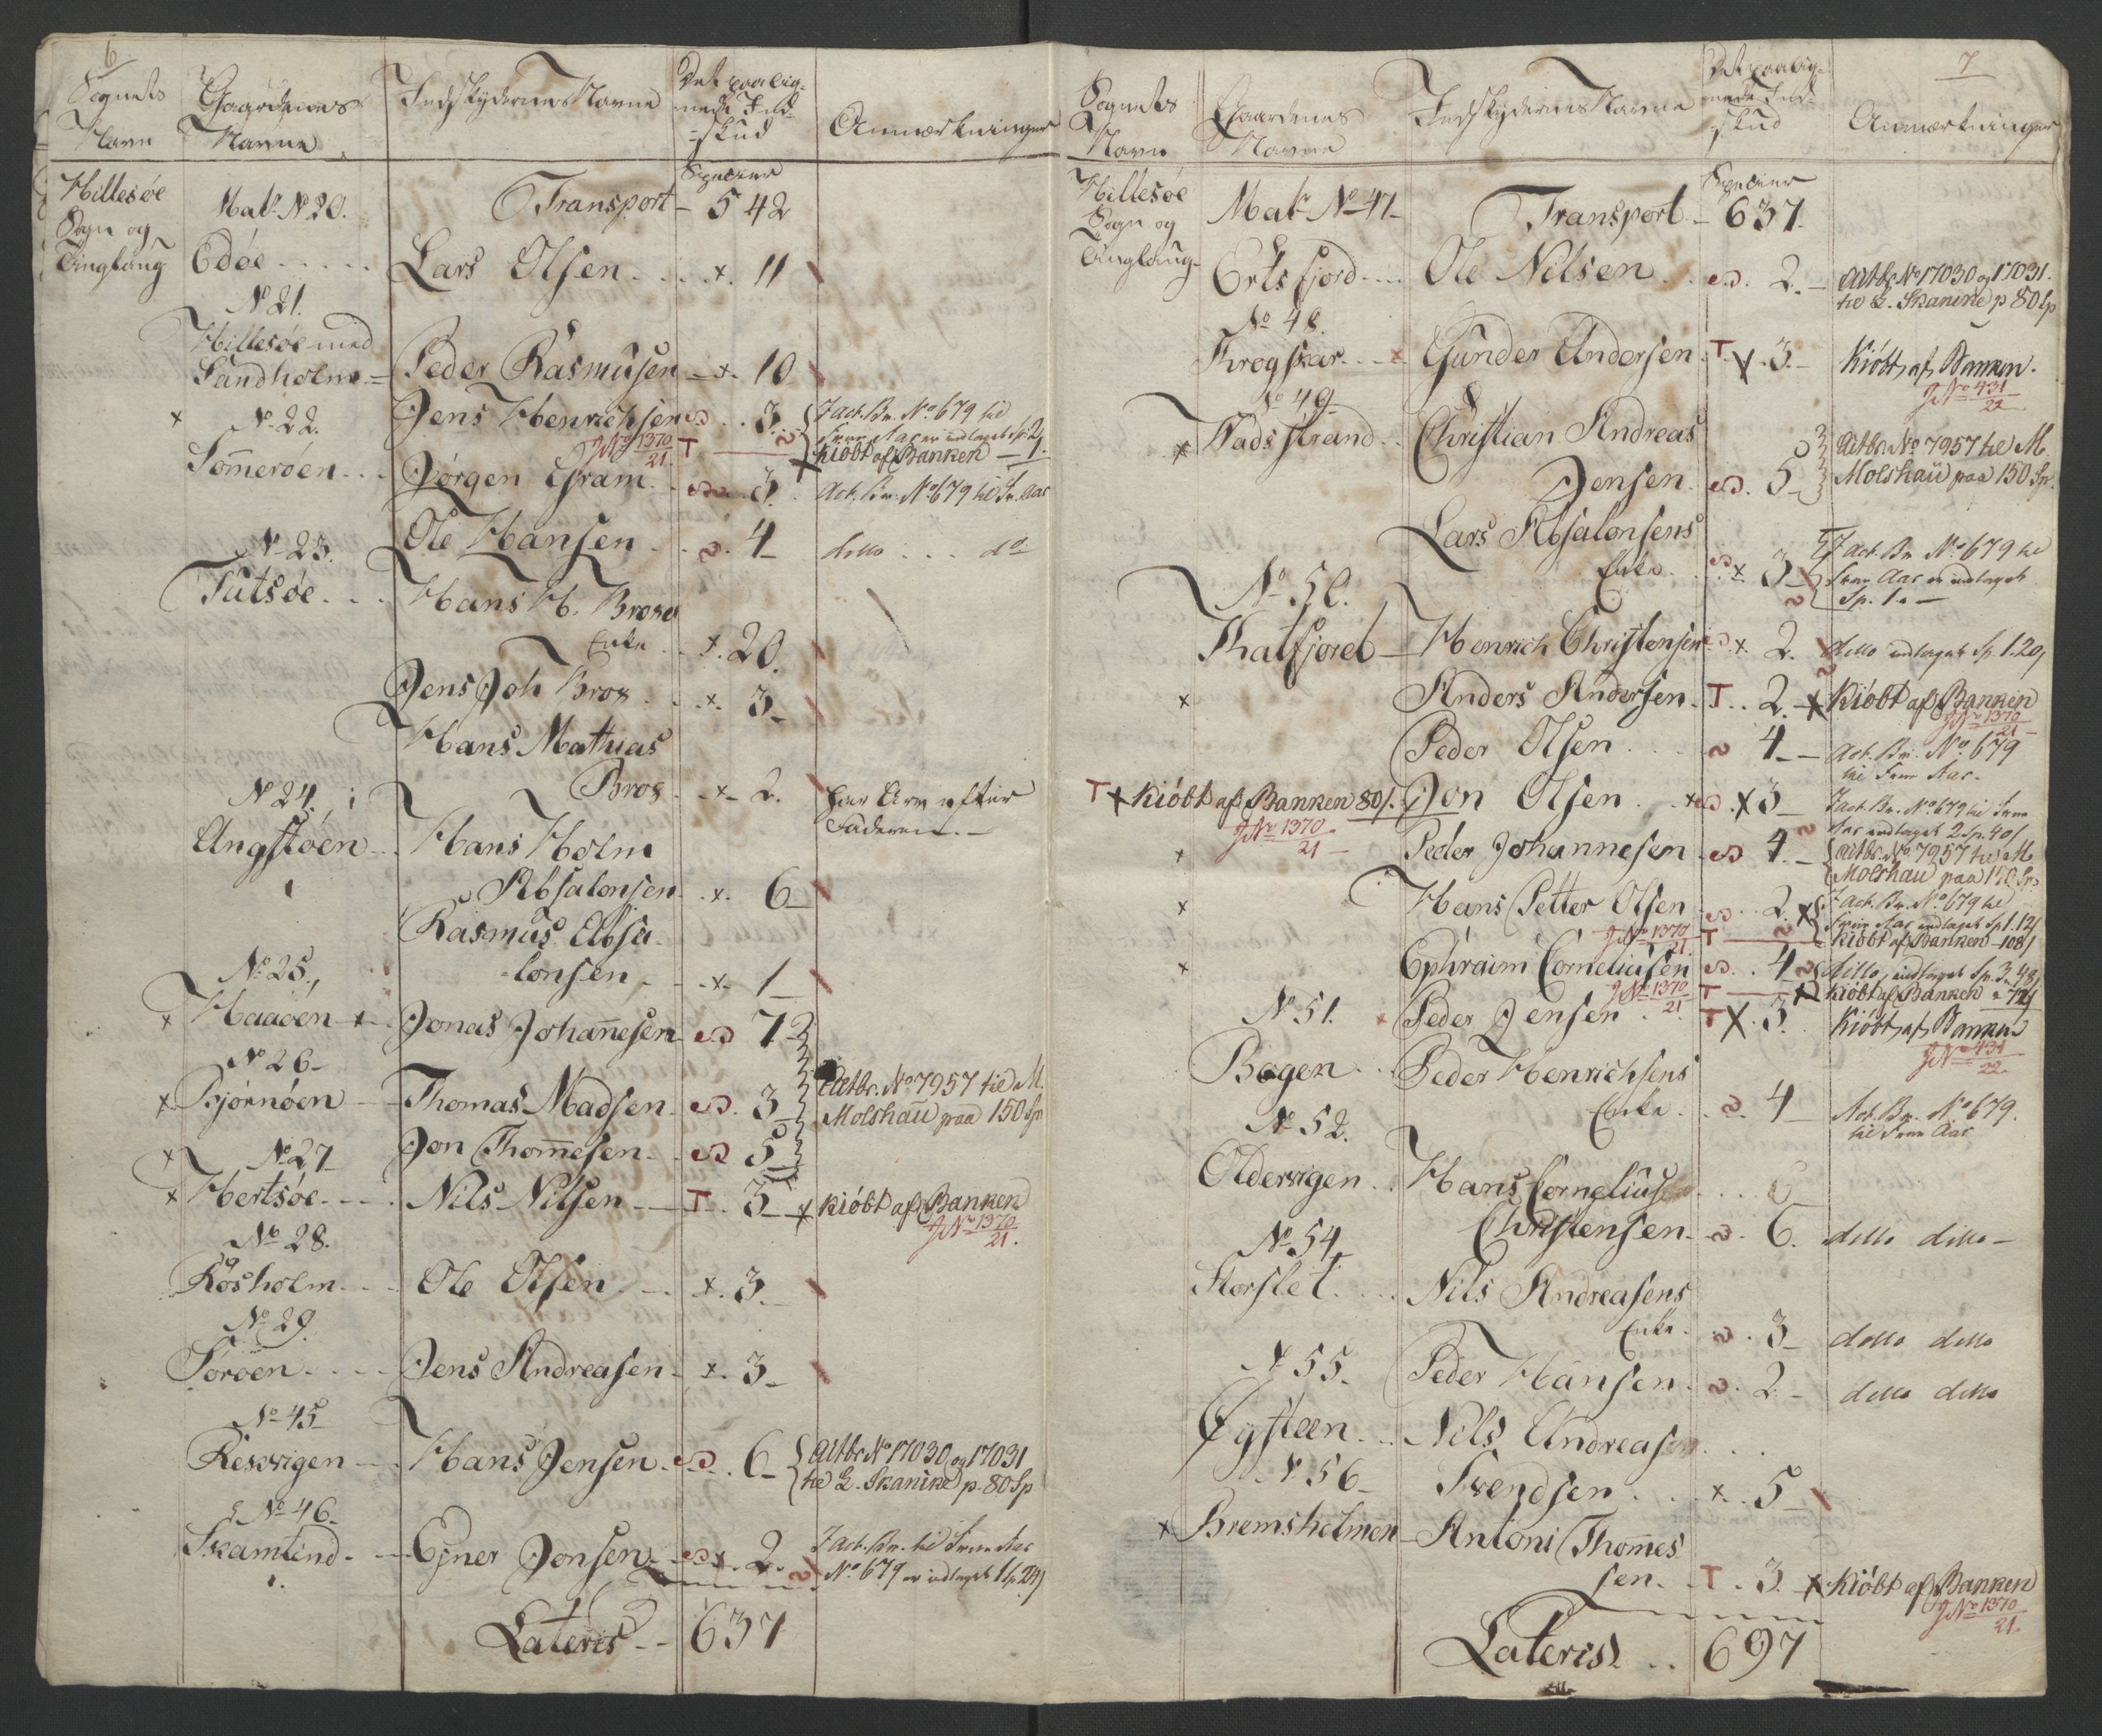 6
Sognets
Navn
Gaardenes
Navne
Indskydernes Navne
Det paalig-
nede Ind-
skud
Anmærkninger
Hillesöe
Sogn og
Tinglaug
Mat. No 20.
Transport
Specier
542
Edöe
Lars Olsen x. 11
No 21.
Hillesöe med
Sandholm
Peder Rasmusen x. 10
x No 22.
Jens Henrichsen 3
J No 1370
21
T
Act. Br. No 679 til
Trom Aar er indtaget Sp. 2
Kiöbt af Banken 1.
Sommeröen
Jörgen Gram 3. Act. Br. No 679 til Tr. Aar
Ole Hansen 4 ditto do
No 23.
Tutsöe
Hans H. Brox
Enke x. 20.
Jens Joh Brox x. 3
Hans Mathias
Brox x 2. har Arv efter
Faderen.
No 24.
Angstöen
Hans Holm
Absalonsen x. 6
Rasmus Absa-
lonsen x 1
No 25.
x Haaöen
Jonas Johannesen 7
No 26
x Bjørnöen
Thomas Madsen 3
Actbr. No 7957 til M.
Molshau paa 150 Sp
x No 27
Jon Thommesen 5
x Hertsöe Nils Nilsen T. 3 x Kiöbt af Banken
J No 1370
21.
No 28.
Rösholm Ole Olsen x. 3.
No 29.
Söröen Jens Andreasen x. 3
No 45
Resvigen Hans Jensen 6 Actbr No 17030 og 17031
til L. Skanike p. 80 Sp
No 46
Skamtind Ejner Jonsen x. 2. Act. Br. til Trom Aar
No 679 er indtaget 1 Sp 24
Lateris 637
7
Sognets
Navn
Gaardenes
Navne
Indskydernes Navne
Det paalig-
nede Ind-
skud
Anmærkninger
Hillesöe
Sogn og
Tinglaug
Mat No 47
Transport
Specier
637.
Ertsfjord Ole Nilsen 2. Actbr No 17030 og 17031.
til L. Skanike p 80 Sp
No 48.
Krogskar x Gunder Andersen T. x. 3. Kiöbt af Banken.
J No 431
22
No 49
x Vadsstrand Christian Andreas
Jensen 5
Actbr. No 7957 til M.
Molshau paa 150 Sp.
Lars Absalonsens
Enke x 3
Act. Br. No 679 til
Trom Aar er indtaget
Sp. 1.
No 50.
Katfjord Henrich Christensen x 2. ditto indtaget Sp 1.20
x Anders Andersen T. 2. x Kiöbt af Banken
J No 1370
21
Peder Olsen 4 Act. Br. No 679
til Trom Aar.
T x Kiöbt af Banken 80
J No 1370
21
Jon Olsen x 3 Act. Br. No 679 til Trom
Aar indtaget 2 Sp. 40
x Peder Johannesen 4. Actbr. No 7957 til M
Molshau paa 150 Sp
x Hans Petter Olsen 2. Act. Br. No 679 til
Trom Aar indtaget Sp 1.12
J No 1370
21
T Kiöbt af Banken 108
x Ephraim Corneliusen 4 ditto, indtaget Sp. 3. 48
J No 1370
21
T Kiöbt af Banken 72
No 51. x Peder Jensen T x. 3. Kiöbt af Banken
J No 431
22.
Bogen Peder Henrichsens
Enke 4 Act. Br. No 679.
til Trom Aar
No 52.
Oldervigen Hans Cornelius
Christensen 6. ditto ditto
No 54
Storslet Nils Andreasens
Enke 3 ditto ditto
No 55.
Peder Hansen 2. ditto ditto
Øysteen Nils Andreasen
No 56
Svendsen x. 5
x Bremsholmen Antoni Thommes
sen. T. 3. x Kiöbt af Banken
J No 1370
21.
Lateris 697